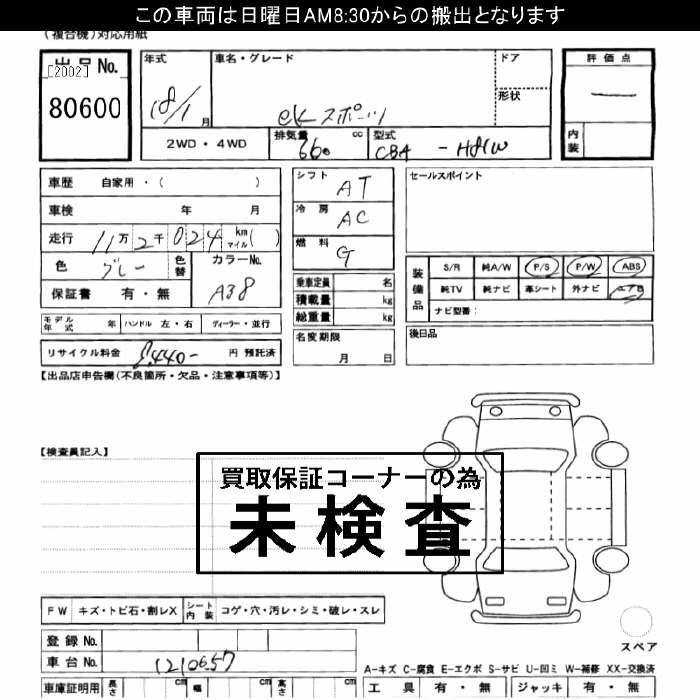 この車両は日曜日AM8:30からの搬出となります
(複合機)対応用紙
出品No.
[2002]
80600
年式
18/1
月
車名・グレード
ekスポーツ
ドア
形状
評価点
内装
2WD・4WD
排気量
660
cc
型式
CBA - H81W
車歴 自家用・( )
車検 年 月
走行 11万2千024 km マイル( )
色 グレー 色替 カラーNo. A38
保証書 有・無
シフト AT
冷房 AC
燃料 G
乗車定員 名
積載量 kg
総重量 kg
名変期限
月 日
セールスポイント
装備品
S/R 純A/W P/S P/W ABS
純TV 純ナビ 革シート 外ナビ
ナビ型番:
後日品
モデル年式 年 ハンドル 左・右 ディーラー・並行
リサイクル料金 8,440- 円 預託済
【出品店申告欄(不良箇所・欠品・注意事項等)】
【検査員記入】
買取保証コーナーの為
未検査
FW キズ・トビ石・割レX シート内装 コゲ・穴・汚レ・シミ・破レ・スレ
登録No.
車台No. 1210657
スペア
A-キズ C-腐食 E-エクボ S-サビ U-凹ミ W-補修 XX-交換済
車庫証明用 長さ cm 幅 cm 高さ cm
工具 有・無 ジャッキ 有・無